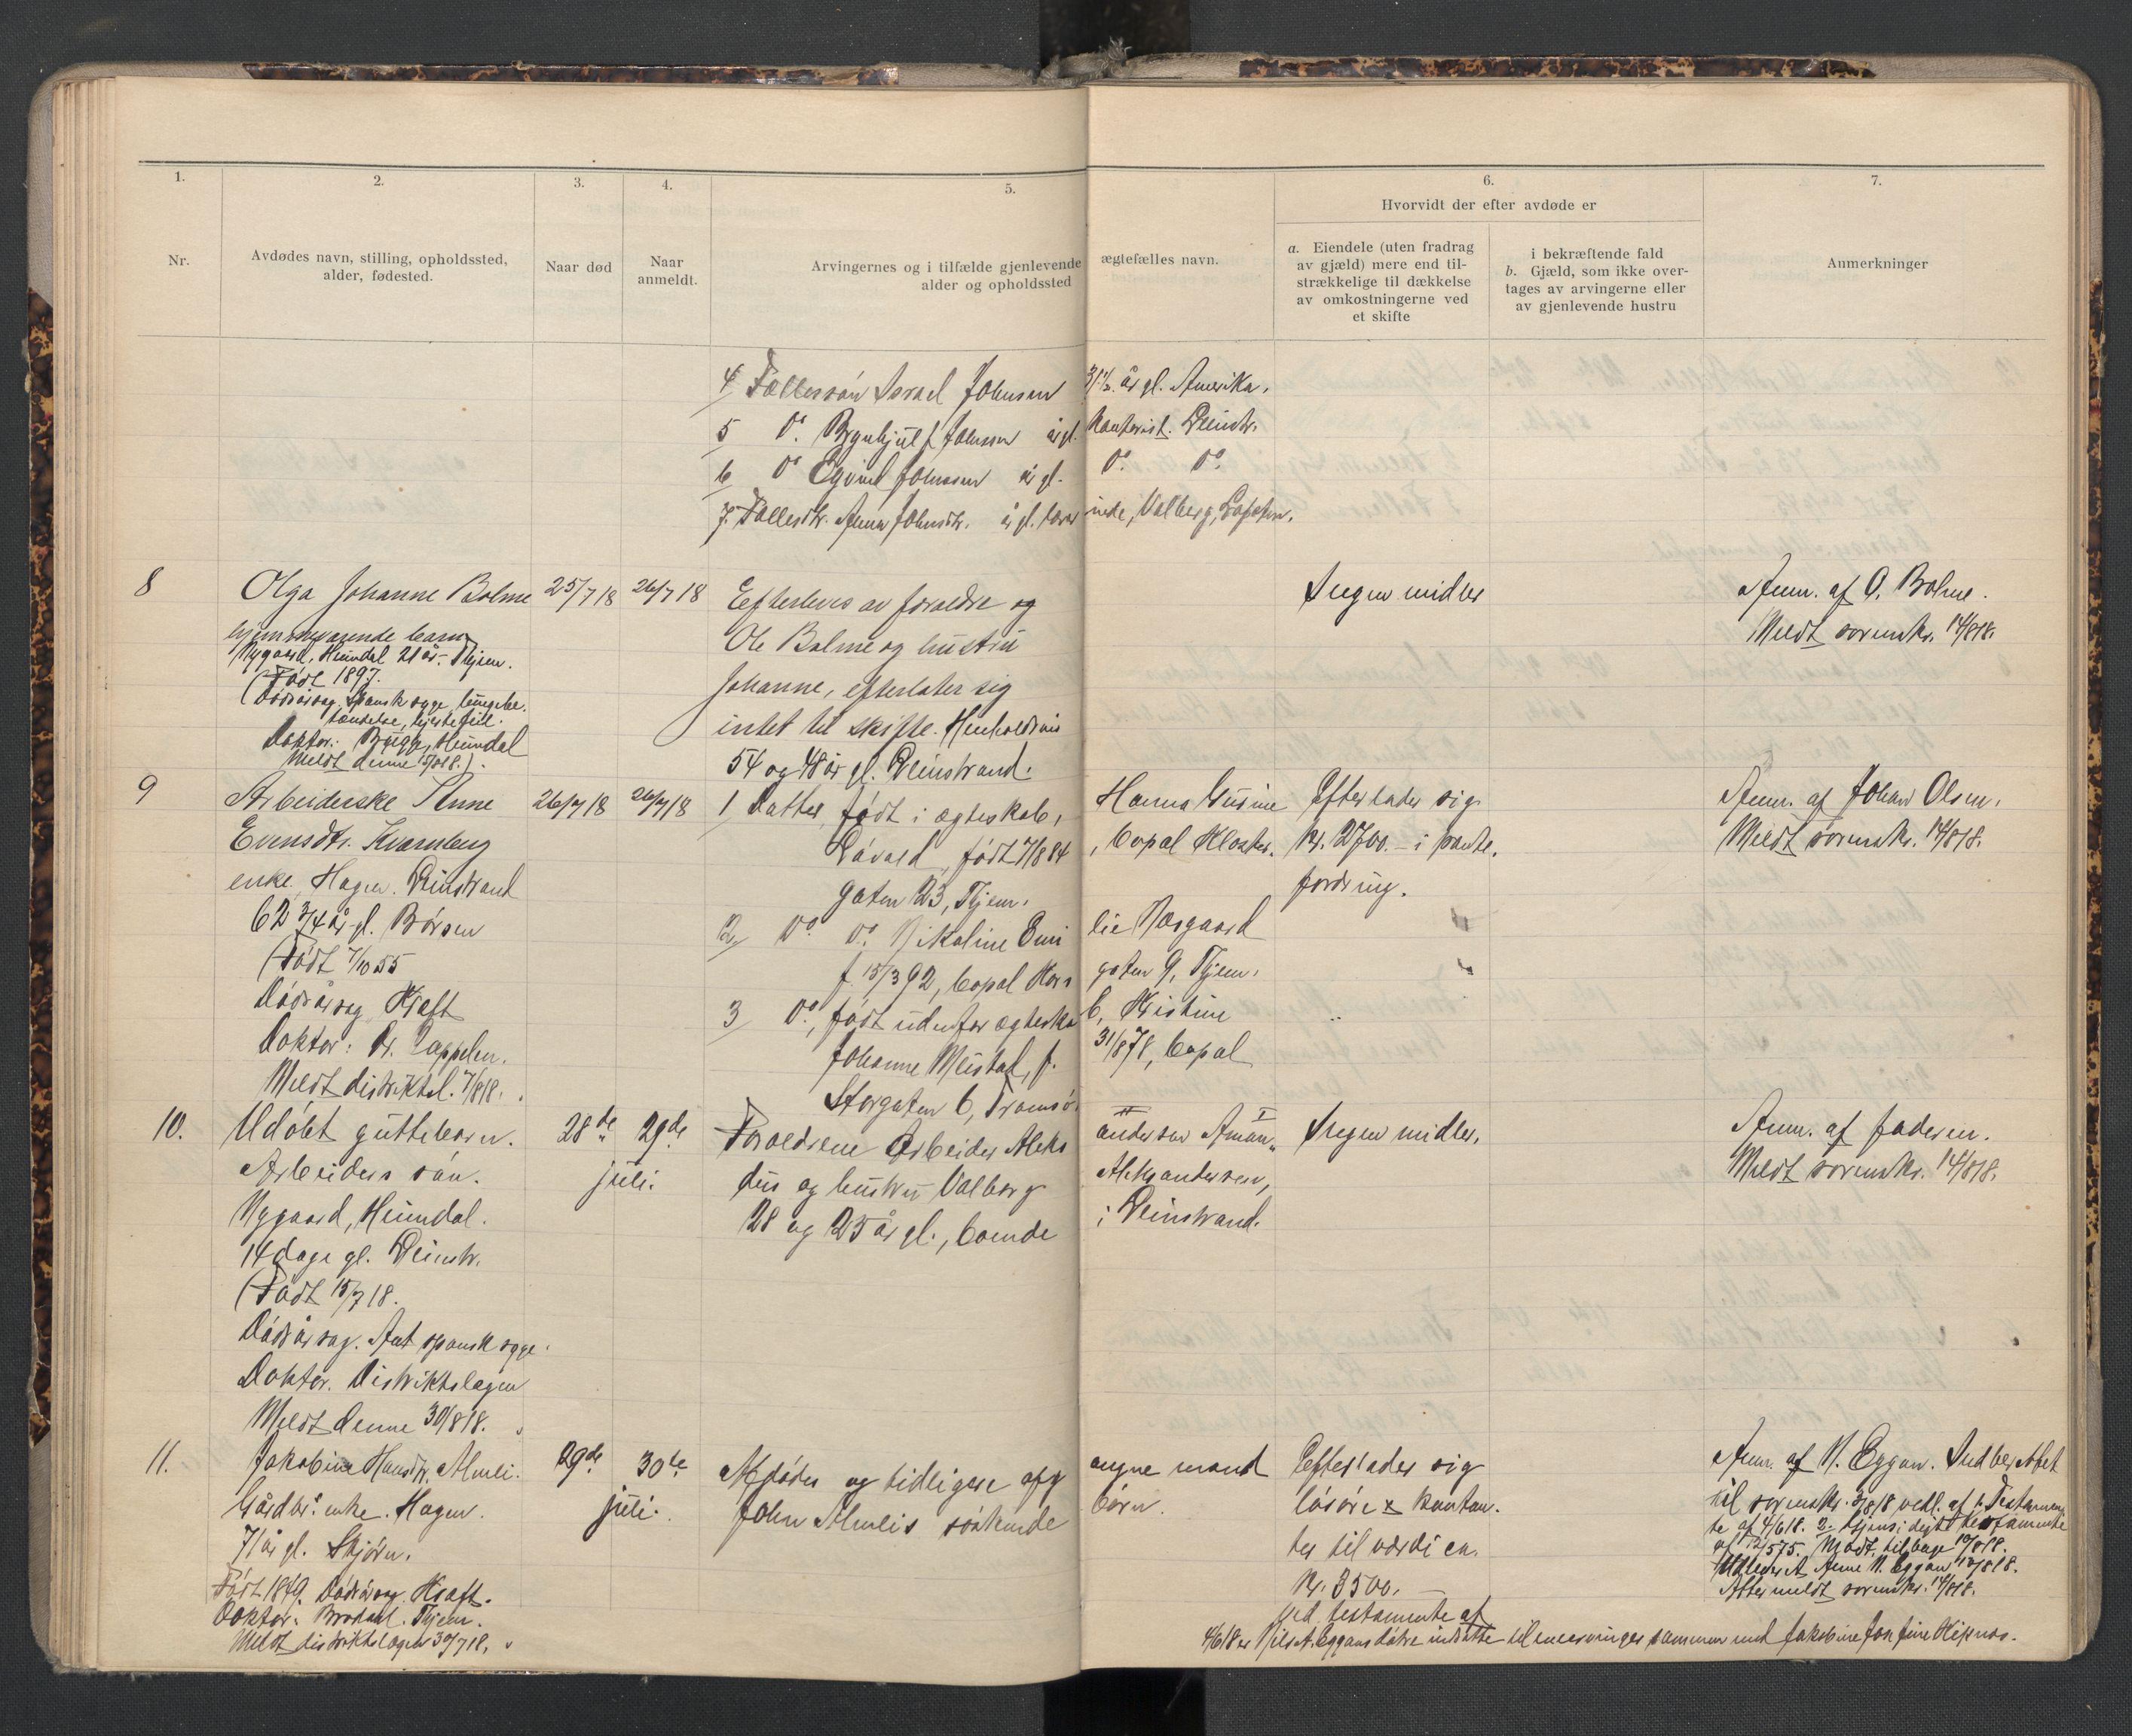 1.
2.
3.
4.
5.
6.
7.
Nr.
Avdødes navn, stilling, opholdssted,
alder, fødested.
Naar død
Naar
anmeldt.
Arvingernes og i tilfælde gjenlevende ægtefælles navn.
alder og opholdssted
Hvorvidt der efter avdøde er
a. Eiendele (uten fradrag
av gjæld) mere end til-
strækkelige til dækkelse
av omkostningerne ved
et skifte
i bekræftende fald
b. Gjæld, som ikke over-
tages av arvingerne eller
av gjenlevende hustru
Anmerkninger
4 Fællessøn Israel Johnsen 31½ år gl. Amerika.
5 Do. Brynhjulf Johnsen år gl. Kontorist. Leinstr.
6 Do Eyvind Johnsen år gl. Do. Do.
7. Fællesdtr. Anna Johnsdtr. år gl. lærerinde, Valberg, Lofoten.
8
Olga Johanne Bolme
hjemmeværende barn
Nygaard, Heimdal 21 år. Thjem.
(Født 1897.
Dødsårsag. Spansk syge, lungebe.
tændelse, hjertefeil.
Doktor: Brügger, Heimdal
Meldt denne 15/818.).
25/718
26/718
Efterleves av forældre og
Ole Bolme og hustru
Johanne, efterlater sig
intet til skifte. Henholdsvis
54 og 48 år gl. Leinstrand.
Ingen midler
Anm. af O. Bolme.
Meldt sorenskr. 14/818.
9
Arbeiderske Anne
Evensdtr. Kvamberg
enke, Hagen. Leinstrand
62 3/4 år gl. Børsen
(Født 7/1055
Dødsårsag Kræft
Doktor: Dr. Cappelen.
Meldt distriktsl. 7/818.
26/718
26/718
1 Datter, født i ægteskab, Hanna Gusine
Løvaas, født 7/884, bopæl Kloster.
gaten 23, Thjem.
2 Do. do. Nikoline Emilie Næsgaard
f. 15/392, bopæl Korsgaten 9, Thjem.
3 Do., født udenfor ægteskab, Kristine
Johanne Meistad, f. 31/878, bopæl
Storgaten 6, Tromsø.
Efterlader sig
kr. 2700.- i pante.
fordring.
Anm. af Johan Olsen.
Meldt sorenskr. 14/818.
10.
Udøbt guttebarn.
Arbeiders søn.
Nygaard, Heimdal.
14 dage gl. Leinstr.
(Født 15/718.
Dødsårsag. Ant spansk syge.
Doktor. Distriktslægen
Meldt denne 30/818.
28de
29de
juli.
Forældrene Arbeider Aleksandersen Aman„
dus og hustru Valborg Aleksandersen,
28 og 25 år gl., boende i Leinstrand.
Ingen midler.
Anm. af faderen.
Meldt sorenskr. 14/818.
11.
Jakobine Hansdtr. Almli.
Gårdbr. enke. Hagen.
71 år gl. Skjørn.
Født 1849. Dødsårsag. Kræft.
Doktor: Brodahl. Thjem.
Meldt distriktslægen 30/718.
29de
30te
juli.
Afdødes og tidligere afgangne mand
John Almlis søskende børn.
Efterlader sig
løsøre & kontan.
ter til værdi ca.
Kr. 3500.
Ved testamente af
4/618 er Nils A. Eggans døtre indsatte til enearvinger sammen med Jakobine Josefine Hepsø.
Anm. af N. Eggan. Indberettet
til sorenskr. 3/818 vedl. af 1. Testamen
te af 4/618. 2. testamente
af 12/575. Modt. tilbage 10/818.
Udlevert Arne N. Eggan 12/818.
Atter meldt sorenskr. 14/818.